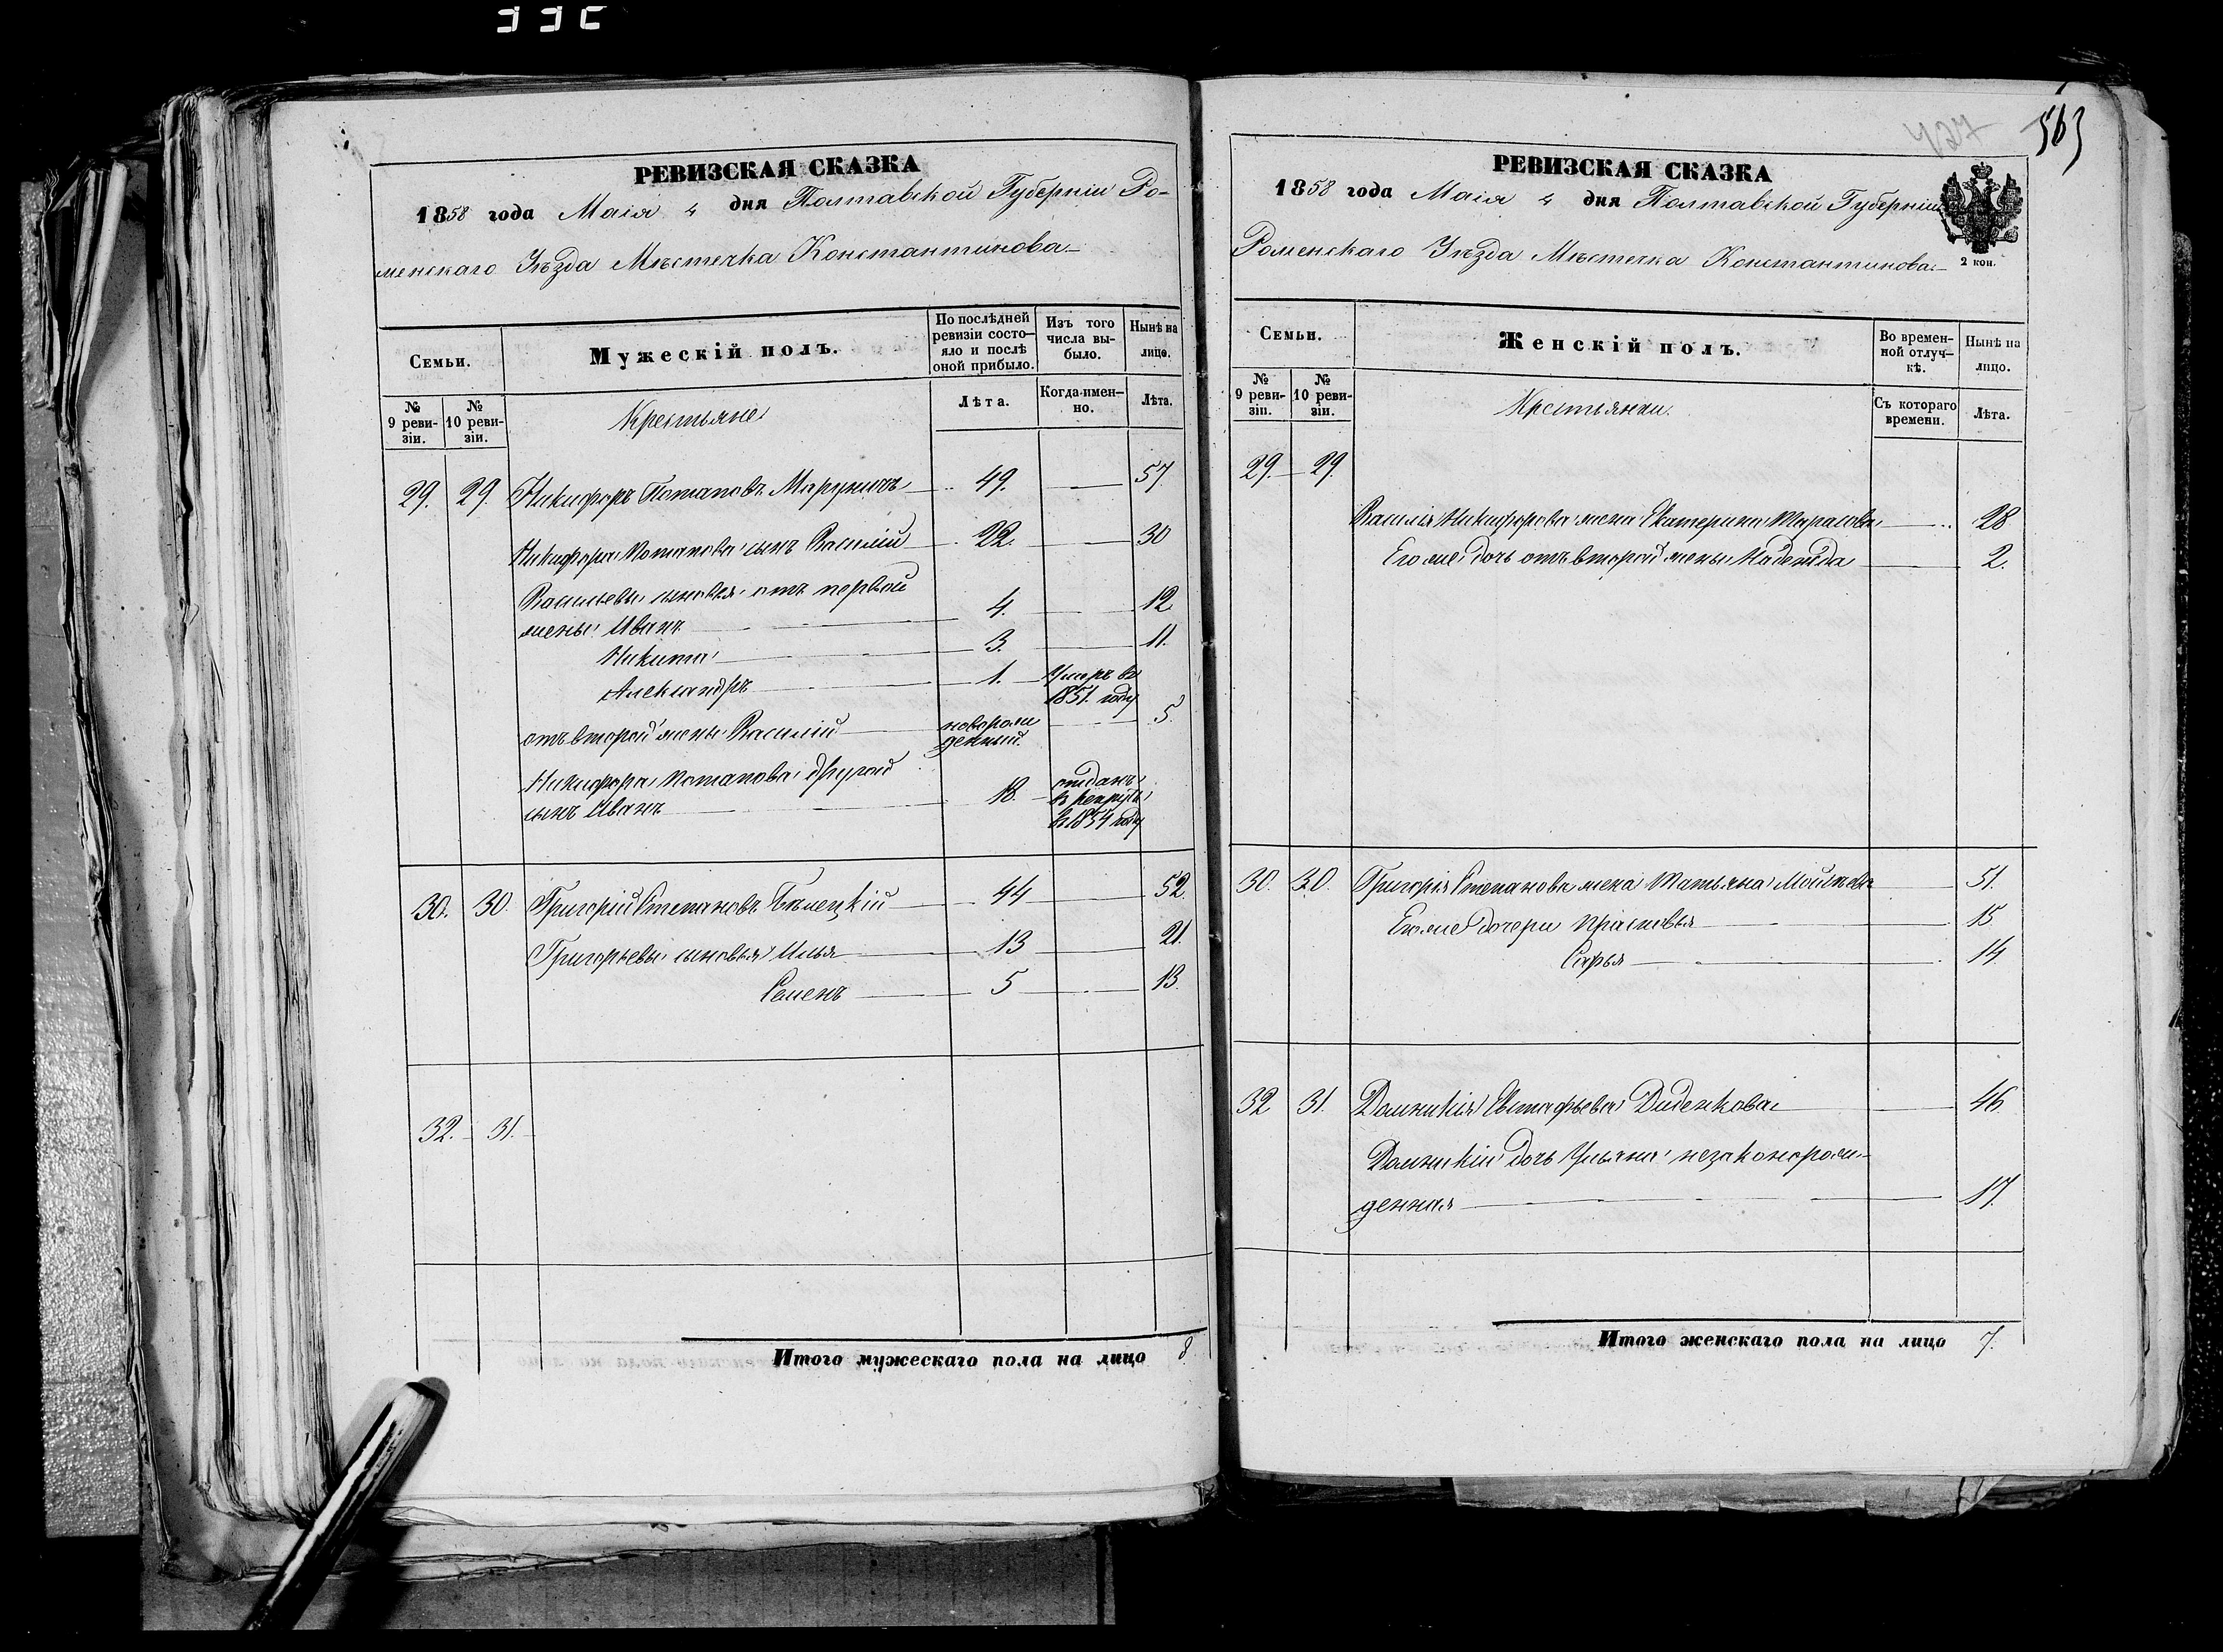 РЕВИЗСКАЯ СКАЗКА
1858 года Маія 4 дня Полтавской Губерніи Ро-
менскаго Уѣзда Мѣстечка Константинова
Семьи.
Мужескій полъ.
По послѣдней ревизіи состо-яло и послѣ оной прибыло.
Изъ того числа вы-было.
Нынѣ на лицо.
№ 9 реви-зіи.
№ 10 реви-зіи.
Крестьяне
Лѣта.
Когда имен-но.
Лѣта.
29. 29. Никифоръ Потаповъ 49. 57
Никифора Потапова сынъ Василій 22. 30
Васильевы сыновья отъ первой
жены Иванъ 4. 12
Никита 3. 11.
Александръ 1. Умеръ въ
1851. году
отъ второй жены Василій новорож
денный. 5.
Никифора Потапова другой
сынъ Иванъ 18. отданъ
въ рекруты
въ 1854 году
30. 30. Григорій Степановъ Бѣлецкій 44 52
Григорьевы сыновья Илья 13 21.
Семенъ 5 13.
32. 31.
Итого мужескаго пола на лицо 8
563
427
РЕВИЗСКАЯ СКАЗКА
1858 года Маія 4 дня Полтавской Губерніи
Роменскаго Уѣзда Мѣстечка Константинова
2 коп.
Семьи.
Женскій полъ.
Во времен-ной отлуч-кѣ.
Нынѣ на лицо.
№ 9 реви-зіи.
№ 10 реви-зіи.
Крестьянки.
Съ котораго времени.
Лѣта.
29. 29.
Василія Никифорова жена Екатерина Тарасова 28
Его же дочь отъ второй жены Надежда 2.
30. 30. Григорія Степанова жена Татьяна 51.
Его же дочери Прасковья 15
Софья 14.
32 31. Домникія Евстафьева Диденкова 46
Домникіи дочь Ульяна незаконорож-
денная 17.
Итого женскаго пола на лицо 7.